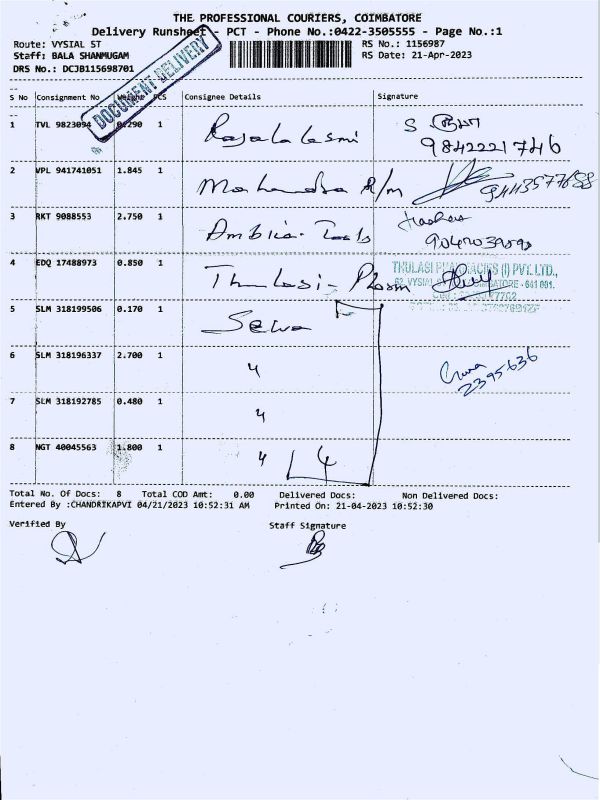 THE PROFESSIONAL COURIERS, COIMBATORE
Delivery Runsheet - PCT - Phone No.:0422-3505555 - Page No.:1
Route: VYSIAL ST
RS No.: 1156987
Staff: BALA SHANMUGAM
RS Date: 21-Apr-2023
DRS No.: DCJB115698701
DOCUMENT DELIVERY
S No Consignment No Weight PCS Consignee Details Signature
1 TVL 9823094 0.290 1 S 9842221746
2 VPL 941741051 1.845 1 Mahendra R/m
3 RKT 9088553 2.750 1 Ambica
4 EDQ 17488973 0.850 1 Thulasi - Pharm
THULASI PHARMACIES (I) PVT. LTD.,
62, VYSIAL COIMBATORE - 641 001.
5 SLM 318199506 0.170 1 Selva
6 SLM 318196337 2.700 1 〃 2395636
7 SLM 318192785 0.480 1 〃
8 NGT 40045563 1.800 1 〃 4
Total No. Of Docs: 8 Total COD Amt: 0.00 Delivered Docs: Non Delivered Docs:
Entered By :CHANDRIKAPVI 04/21/2023 10:52:31 AM Printed On: 21-04-2023 10:52:30
Verified By Staff Signature